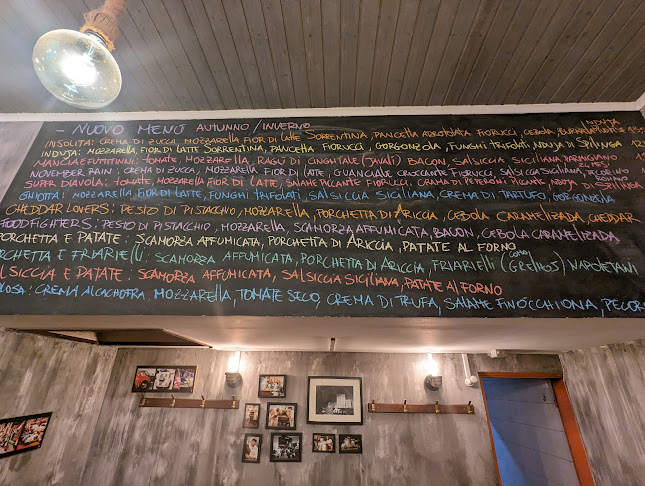 - NUOVO MENÚ AUTUNNO/INVERNO
INSOLITA: CREMA DI ZUCCA, MOZZARELLA FIOR DI LATTE SORRENTINA, PANCETTA ARROTOLATA FIORUCCI, CEBOLA,
INDUJA: MOZZARELLA, FIOR DI LATTE SORRENTINA, PANCETTA FIORUCCI, GORGONZOLA, FUNGHI TRIFOLATI, NDUJA DI SPILINGA
MANCIAEFUTTITINNI: TOMATE, MOZZARELLA, RAGU DI CINGHIALE (JAVALI) BACON, SALSICCIA SICILIANA, PARMIGIANO
NOVEMBER RAIN: CREMA DI ZUCCA, MOZZARELLA FIOR DI LATTE, GUANCIALE CROCCANTE FIORUCCI, SALSICCIA SICILIANA, PECORINO
SUPER DIAVOLA: TOMATE, MOZZARELLA FIOR DI LATTE, SALAME PICCANTE FIORUCCI, CREMA DI PEPERONI PICANTE, NDUJA DI SPILINGA
GHIOTTA: MOZZARELLA FIOR DI LATTE, FUNGHI TRIFOLATI, SALSICCIA SICILIANA, CREMA DI TARTUFO, GORGONZOLA
CHEDDAR LOVERS: PESTO DI PISTACCHIO, MOZZARELLA, PORCHETTA DI ARICCIA, CEBOLA CARAMELIZADA, CHEDDAR
FOODFIGHTERS: PESTO DI PISTACCHIO, MOZZARELLA, SCAMORZA AFFUMICATA, BACON, CEBOLA CARAMELIZADA
PORCHETTA E PATATE: SCAMORZA AFFUMICATA, PORCHETTA DI ARICCIA, PATATE AL FORNO
RCHETTA E FRIARIELLI: SCAMORZA AFFUMICATA, PORCHETTA DI ARICCIA, FRIARIELLI (GRELHOS) NAPOLETANI
LSICCIA E PATATE: SCAMORZA AFFUMICATA, SALSICCIA SICILIANA, PATATE AL FORNO
LOSA: CREMA ALCACHOFRA, MOZZARELLA, TOMATE SECO, CREMA DI TRUFA, SALAME FINOCCHIONA, PECOR